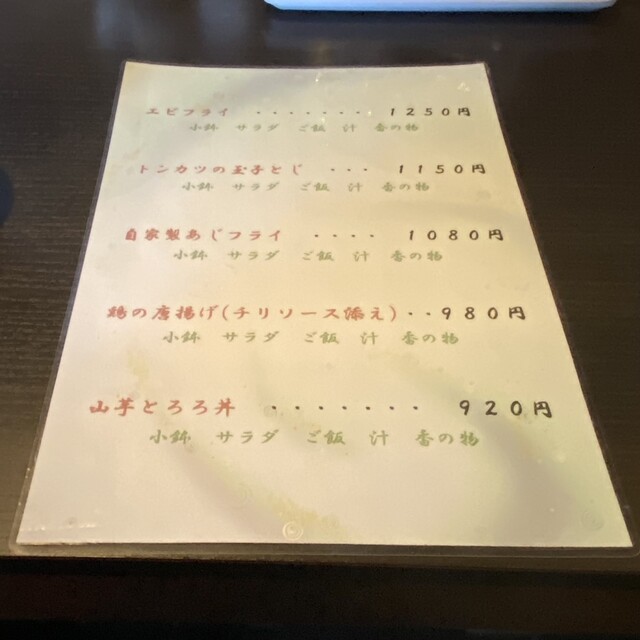 エビフライ ・・・・・・・ 1250円
小鉢 サラダ ご飯 汁 香の物
トンカツの玉子とじ ・・・ 1150円
小鉢 サラダ ご飯 汁 香の物
自家製あじフライ ・・・・ 1080円
小鉢 サラダ ご飯 汁 香の物
鶏の唐揚げ(チリソース添え)・・980円
小鉢 サラダ ご飯 汁 香の物
山芋とろろ丼 ・・・・・・・ 920円
小鉢 サラダ ご飯 汁 香の物